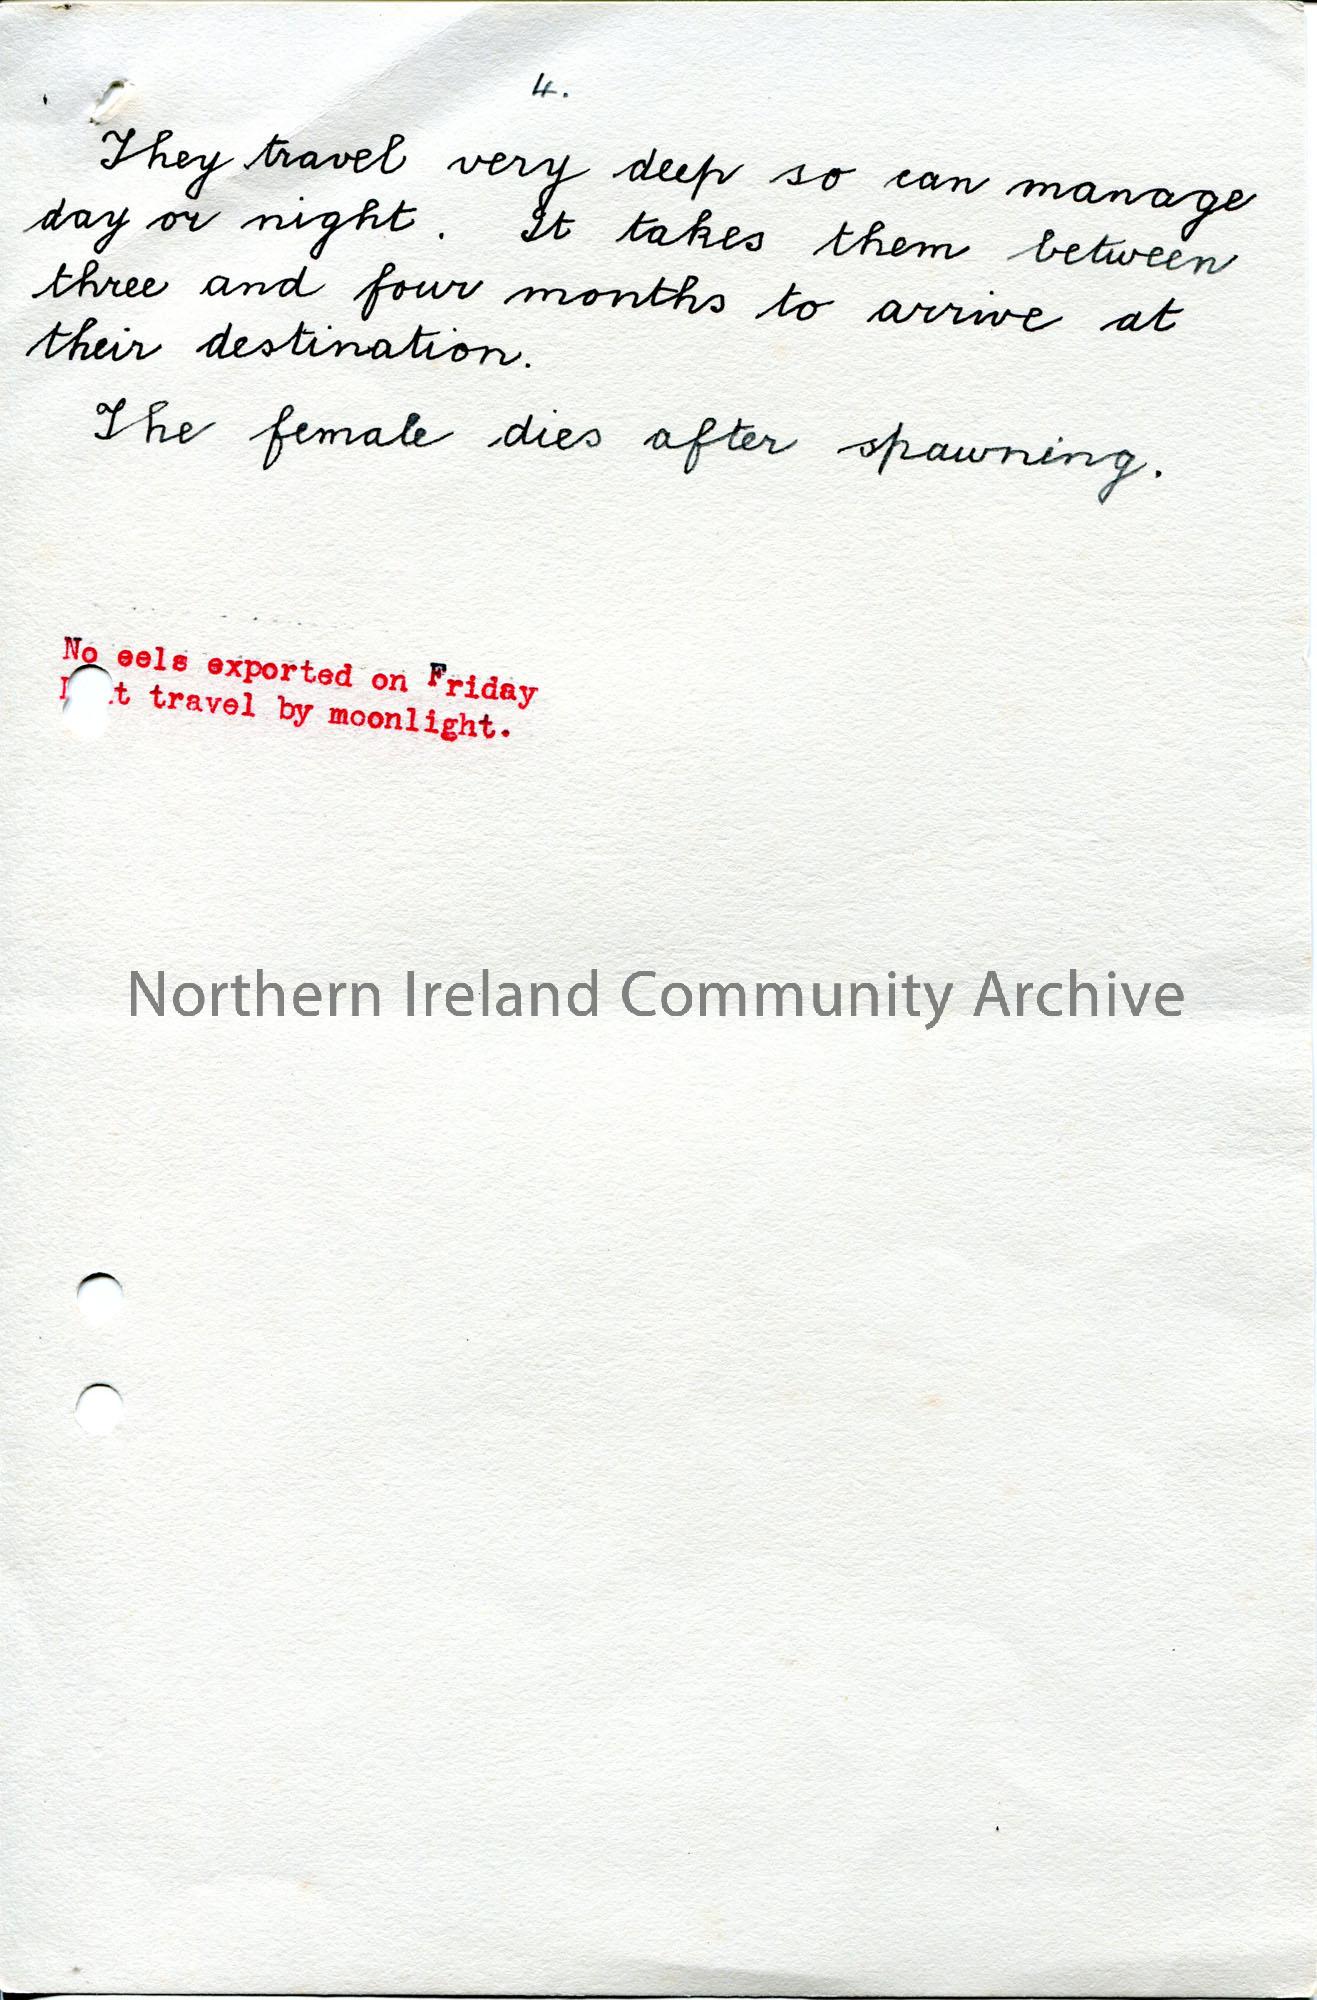 4.
They travel very deep so can manage
day or night. It takes them between
three and four months to arrive at
their destination.
The female dies after spawning.
No eels exported on Friday
travel by moonlight.
Northern Ireland Community Archive